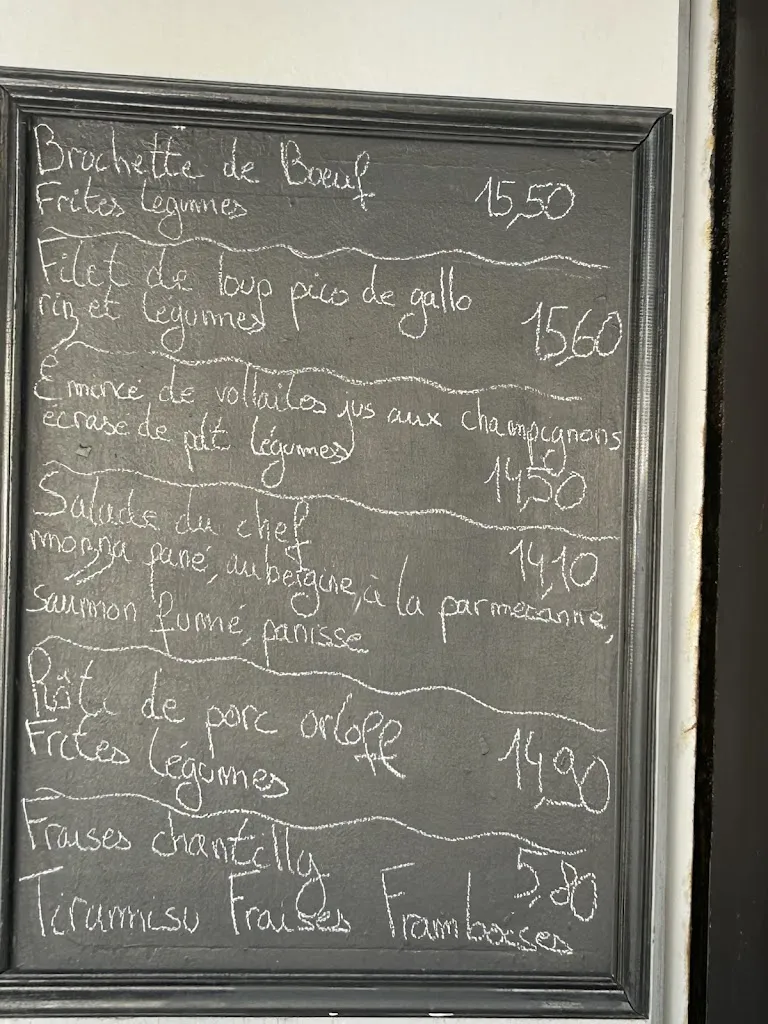 Brochette de Boeuf
Frites légumes 15,50
Filet de loup pico de gallo
riz et légumes 15,60
Émincé de vollailes jus aux champignons
écrasé de pdt légumes 14,50
Salade du chef 14,10
mozza pané, aubergine à la parmesanne,
saumon fumé, panisse
Rôti de porc orloff
Frites légumes 14,90
Fraises chantilly 5,80
Tiramisu Fraises Framboises